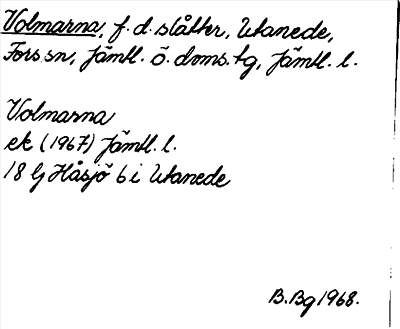 Volmarna, f.d. slåtter, Utanede,
Fors sn, Jämtl. ö. doms.tg, Jämtl. l.
Volmarna
ek (1967) Jämtl. l.
18 G Håsjö 6 i Utanede
B.Bg 1968.